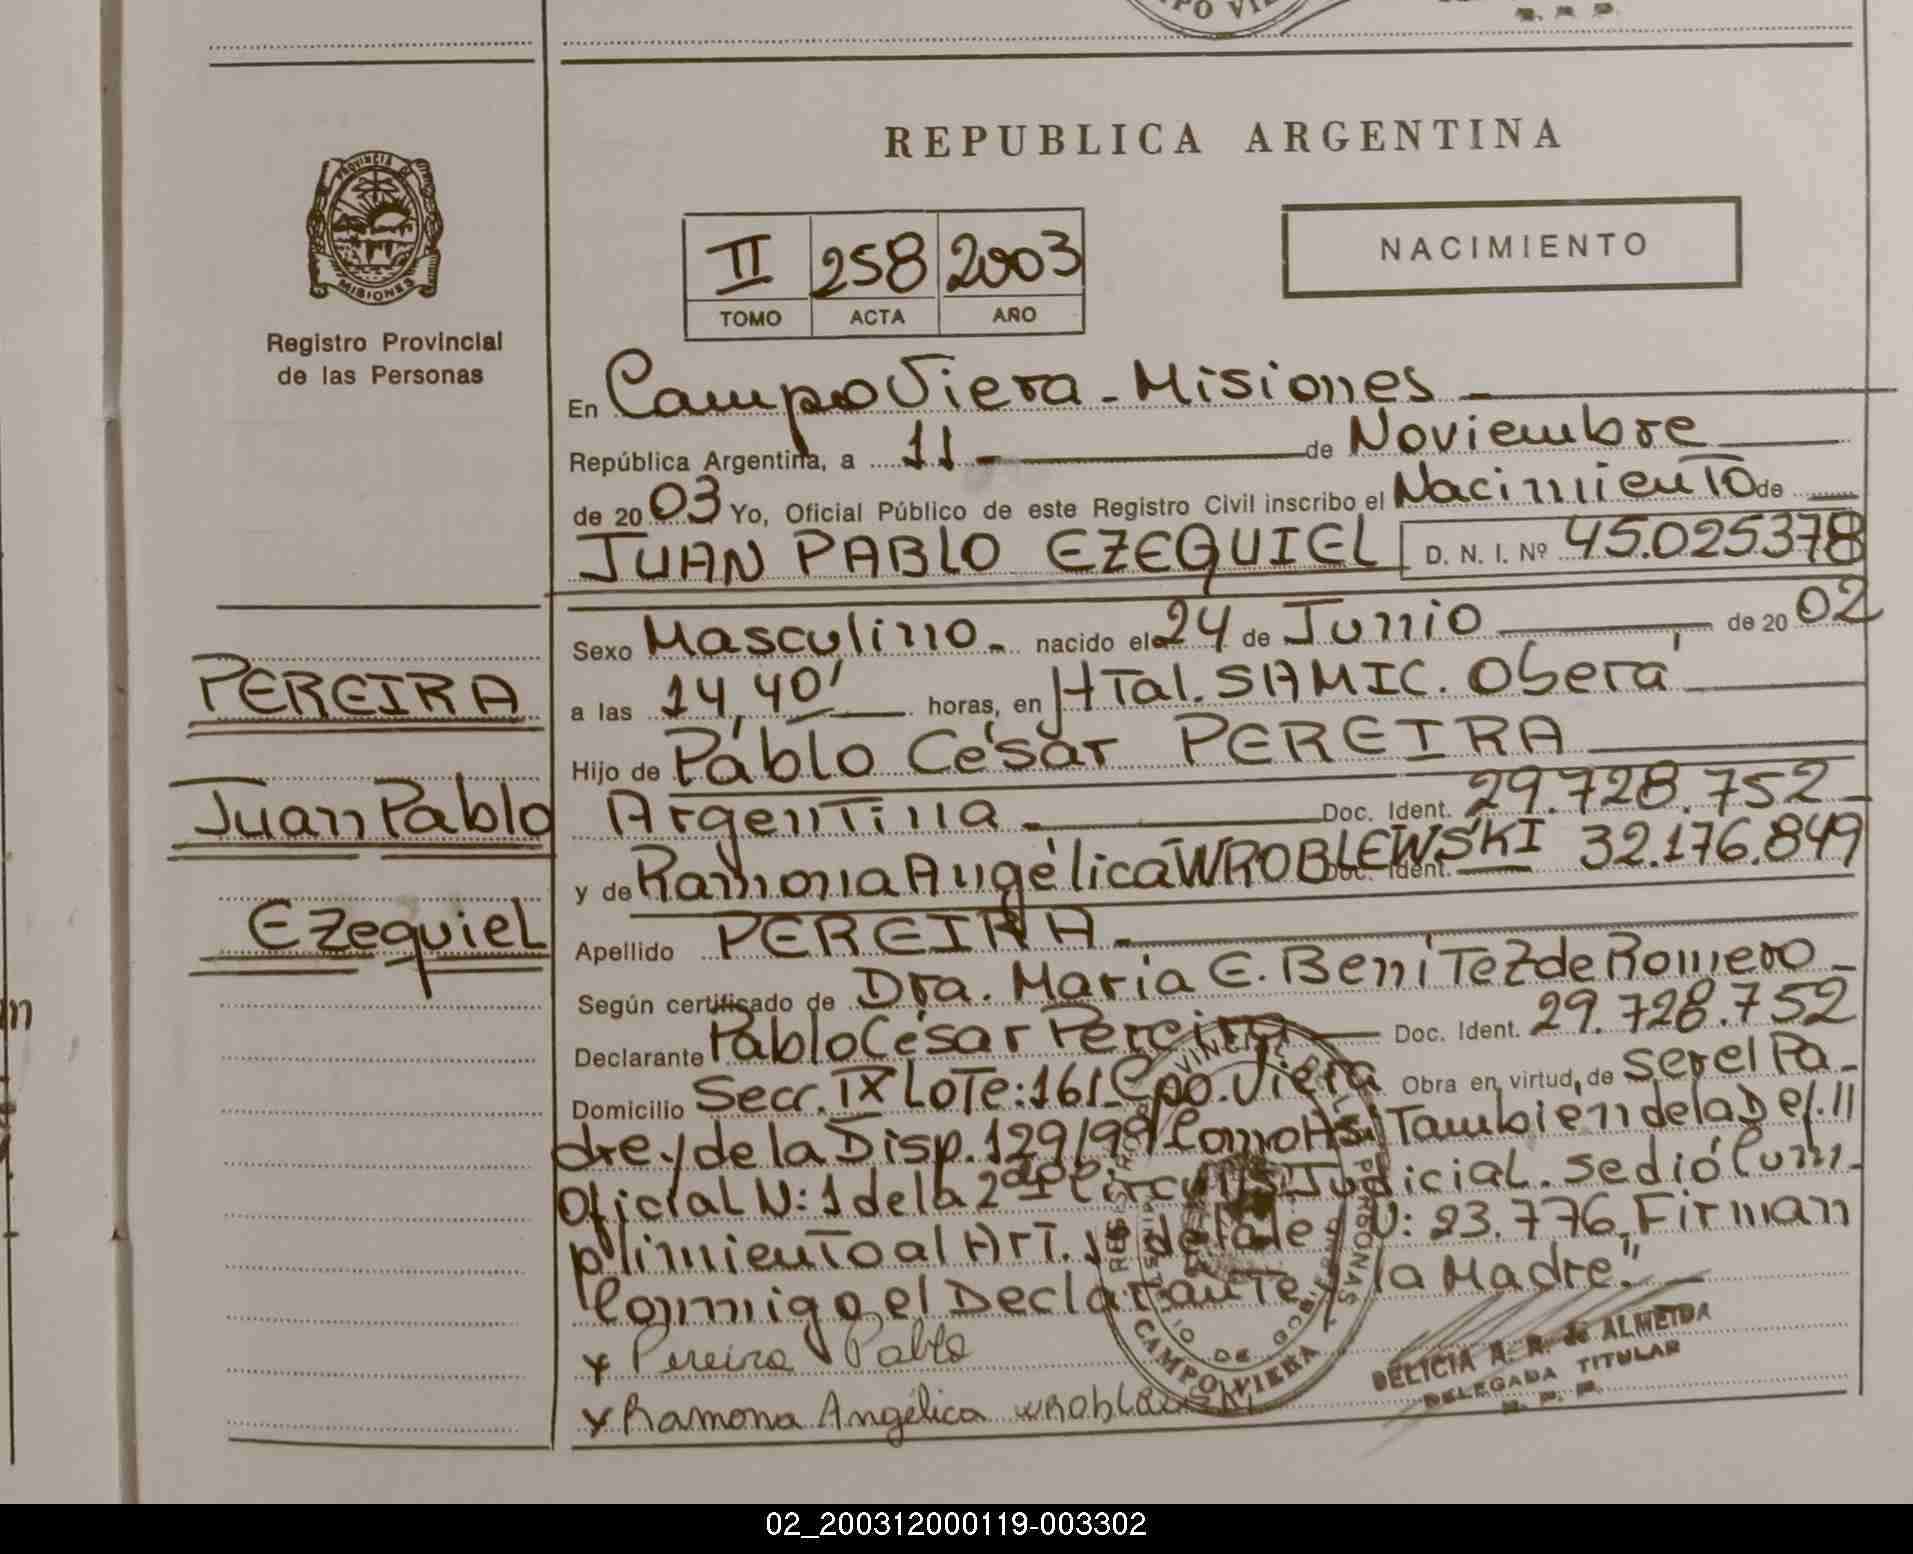 REPUBLICA ARGENTINA
PROVINCIA DE
MISIONES
Registro Provincial
de las Personas
II 258 2003
TOMO ACTA AÑO
NACIMIENTO
En Campo Viera - Misiones
República Argentina, a 11 - de Noviembre
de 20 03 Yo, Oficial Público de este Registro Civil inscribo el Nacimiento de
JUAN PABLO EZEQUIEL D. N. I. Nº 45.025378
Sexo Masculino - nacido el 24 de Junio de 20 02
a las 14,40' horas, en HTal. SAMIC. Oberá
Hijo de Pablo César PEREIRA
Argentina - Doc. Ident. 29.728.752
y de Ramona Angélica WROBLEWSKI Doc. Ident. 32.176.849
Apellido PEREIRA -
Según certificado de Dra. María E. Benitez de Romero
Declarante Pablo César Pereira Doc. Ident. 29.728.752
Domicilio Secc. IX Lote: 161 Cpo. Viera Obra en virtud, de ser el Pa-
dre y de la Disp. 129/99 Como Así También de la Def. II
Oficial N: 1 de la 2da Circuns. Judicial. se dió Cum-
plimiento al Art. 1 de la Ley N: 23.776. Firman
Conmigo, el Declarante y la Madre."
x Pereira Pablo
x Ramona Angélica WROBLEWSKI
PEREIRA
Juan Pablo
Ezequiel
CAMPO VIERA
DELICIA A. R. de ALMEIDA
DELEGADA TITULAR
R. P. P.
02_200312000119-003302